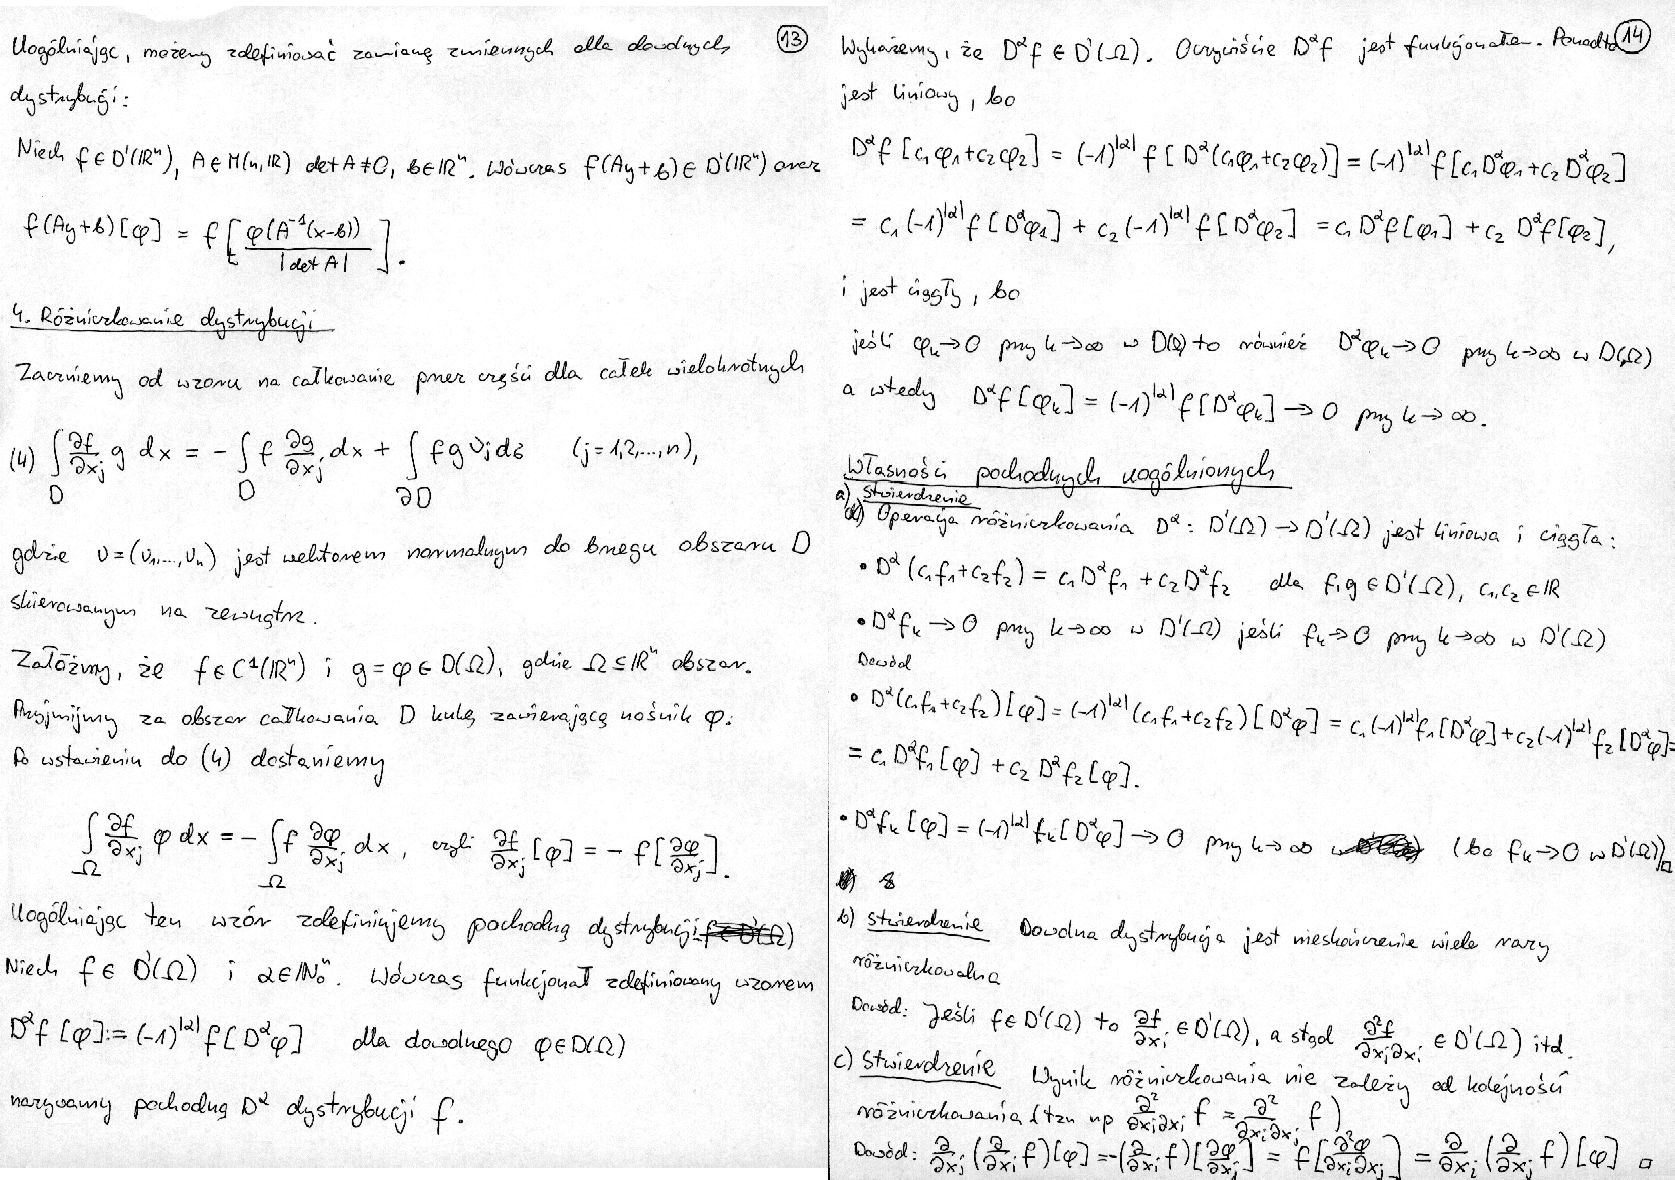 13
Uogólniając, możemy zdefiniować zamianę zmiennych dla dowolnych
dystrybucji:
Niech f ∈ D'(ℝⁿ), A ∈ M(n,ℝ) det A ≠ 0, b ∈ ℝⁿ. Wówczas f(Ay+b) ∈ D'(ℝⁿ) oraz
f(Ay+b)[φ] = f[φ(A⁻¹(x-b)) / |det A|].
4. Różniczkowanie dystrybucji
Zaczniemy od wzoru na całkowanie przez części dla całek wielokrotnych
(4) ∫_D ∂f/∂xⱼ g dx = - ∫_D f ∂g/∂xⱼ dx + ∫_∂D f g νⱼ dσ (j=1,2,...,n),
gdzie ν=(ν₁,...,νₙ) jest wektorem normalnym do brzegu obszaru D
skierowanym na zewnątrz.
Załóżmy, że f ∈ C¹(ℝⁿ) i g = φ ∈ D(Ω), gdzie Ω ⊆ ℝⁿ obszar.
Przyjmijmy za obszar całkowania D kulę zawierającą nośnik φ.
Po wstawieniu do (4) dostaniemy
∫_Ω ∂f/∂xⱼ φ dx = - ∫_Ω f ∂φ/∂xⱼ dx, czyli ∂f/∂xⱼ [φ] = - f[∂φ/∂xⱼ].
Uogólniając ten wzór zdefiniujemy pochodną dystrybucji )
Niech f ∈ D'(Ω) i α ∈ ℕ₀ⁿ. Wówczas funkcjonał zdefiniowany wzorem
D^α f [φ] := (-1)^|α| f[D^α φ] dla dowolnego φ ∈ D(Ω)
nazywamy pochodną D^α dystrybucji f.
14
Wykażemy, że D^α f ∈ D'(Ω). Oczywiście D^α f jest funkcjonałem. Ponadto
jest liniowy, bo
D^α f [c₁φ₁+c₂φ₂] = (-1)^|α| f[D^α(c₁φ₁+c₂φ₂)] = (-1)^|α| f[c₁D^αφ₁+c₂D^αφ₂]
= c₁(-1)^|α| f[D^αφ₁] + c₂(-1)^|α| f[D^αφ₂] = c₁D^αf[φ₁] + c₂ D^αf[φ₂],
i jest ciągły, bo
jeśli φₖ→0 przy k→∞ w D(Ω) to również D^αφₖ→0 przy k→∞ w D(Ω)
a wtedy D^αf[φₖ] = (-1)^|α| f[D^αφₖ] → 0 przy k→∞.
Własności pochodnych uogólnionych
a) Stwierdzenie
Operacja różniczkowania D^α: D'(Ω)→D'(Ω) jest liniowa i ciągła:
• D^α(c₁f₁+c₂f₂) = c₁D^αf₁ + c₂D^αf₂ dla f,g ∈ D'(Ω), c₁,c₂ ∈ ℝ
• D^αfₖ → 0 przy k→∞ w D'(Ω) jeśli fₖ→0 przy k→∞ w D'(Ω)
Dowód
• D^α(c₁f₁+c₂f₂)[φ] = (-1)^|α|(c₁f₁+c₂f₂)[D^αφ] = c₁(-1)^|α|f₁[D^αφ]+c₂(-1)^|α|f₂[D^αφ]=
= c₁D^αf₁[φ] + c₂ D^αf₂[φ].
• D^αfₖ[φ] = (-1)^|α| fₖ[D^αφ] → 0 przy k→∞ (bo fₖ→0 w D'(Ω)) □
b) Stwierdzenie Dowolna dystrybucja jest nieskończenie wiele razy
różniczkowalna
Dowód: Jeśli f ∈ D'(Ω) to ∂f/∂xᵢ ∈ D'(Ω), a stąd ∂²f/∂xⱼ∂xᵢ ∈ D'(Ω) itd.
c) Stwierdzenie Wynik różniczkowania nie zależy od kolejności
różniczkowania (tzn np ∂²/∂xⱼ∂xᵢ f = ∂²/∂xᵢ∂xⱼ f)
Dowód: ∂/∂xⱼ(∂/∂xᵢ f)[φ] = -(∂/∂xᵢ f)[∂φ/∂xⱼ] = f[∂²φ/∂xᵢ∂xⱼ] = ∂/∂xᵢ(∂/∂xⱼ f)[φ] □